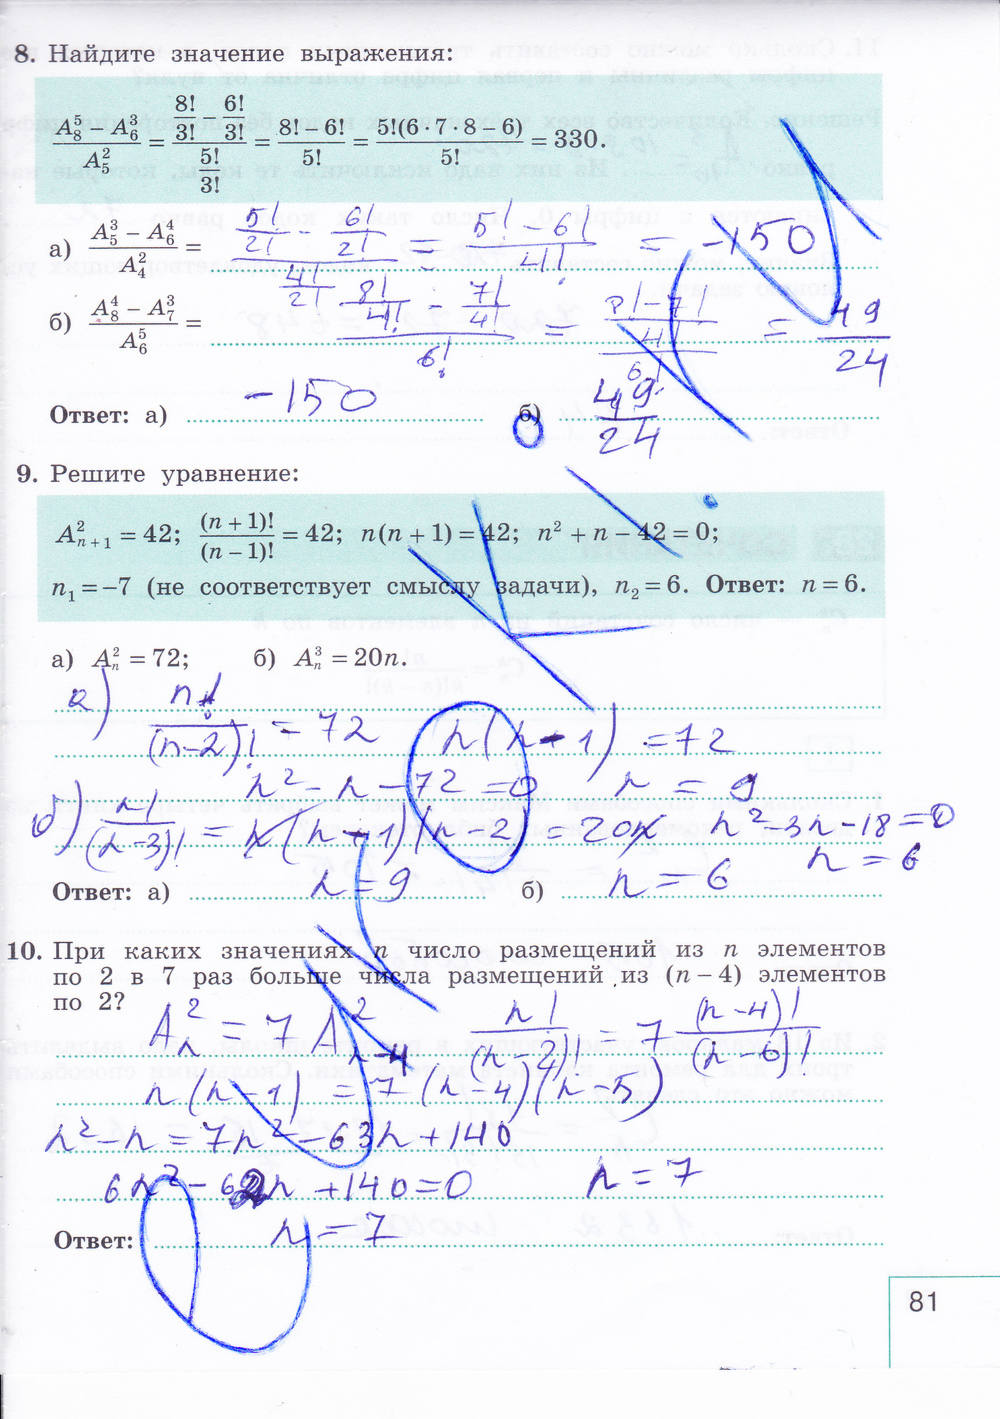 8. Найдите значение выражения:
(A₈⁵ − A₆³)/A₅² = (8!/3! − 6!/3!)/(5!/3!) = (8! − 6!)/5! = 5!(6·7·8 − 6)/5! = 330.
а) (A₅³ − A₆⁴)/A₄² = (5!/2! − 6!/2!)/(4!/2!) = (5! − 6!)/4! = −150
б) (A₈⁴ − A₇³)/A₆⁵ = (8!/4! − 7!/4!)/6! = ((8! − 7!)/4!)/6! = 49/24
Ответ: а) −150 б) 49/24
9. Решите уравнение:
A²ₙ₊₁ = 42; (n + 1)!/(n − 1)! = 42; n(n + 1) = 42; n² + n − 42 = 0;
n₁ = −7 (не соответствует смыслу задачи), n₂ = 6. Ответ: n = 6.
а) Aₙ² = 72; б) Aₙ³ = 20n.
а) n!/(n−2)! = 72 n(n−1) = 72
n² − n − 72 = 0 n = 9
б) n!/(n−3)! = n(n−1)(n−2) = 20n n² − 3n − 18 = 0
n = 6
Ответ: а) n = 9 б) n = 6
10. При каких значениях n число размещений из n элементов
по 2 в 7 раз больше числа размещений из (n − 4) элементов
по 2?
Aₙ² = 7 A²ₙ₋₄ n!/(n−2)! = 7 (n−4)!/(n−6)!
n(n−1) = 7(n−4)(n−5)
n² − n = 7n² − 63n + 140
6n² − 62n + 140 = 0 n = 7
Ответ: n = 7
81